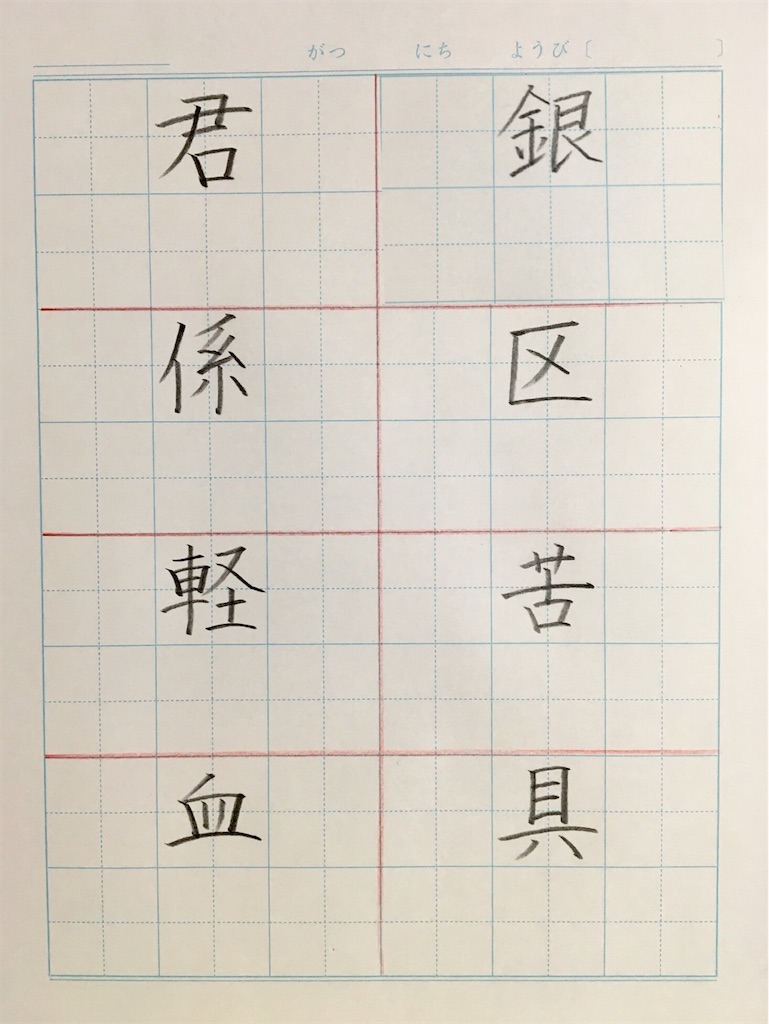 がつ にち ようび〔 〕
銀
区
苦
具
君
係
軽
血